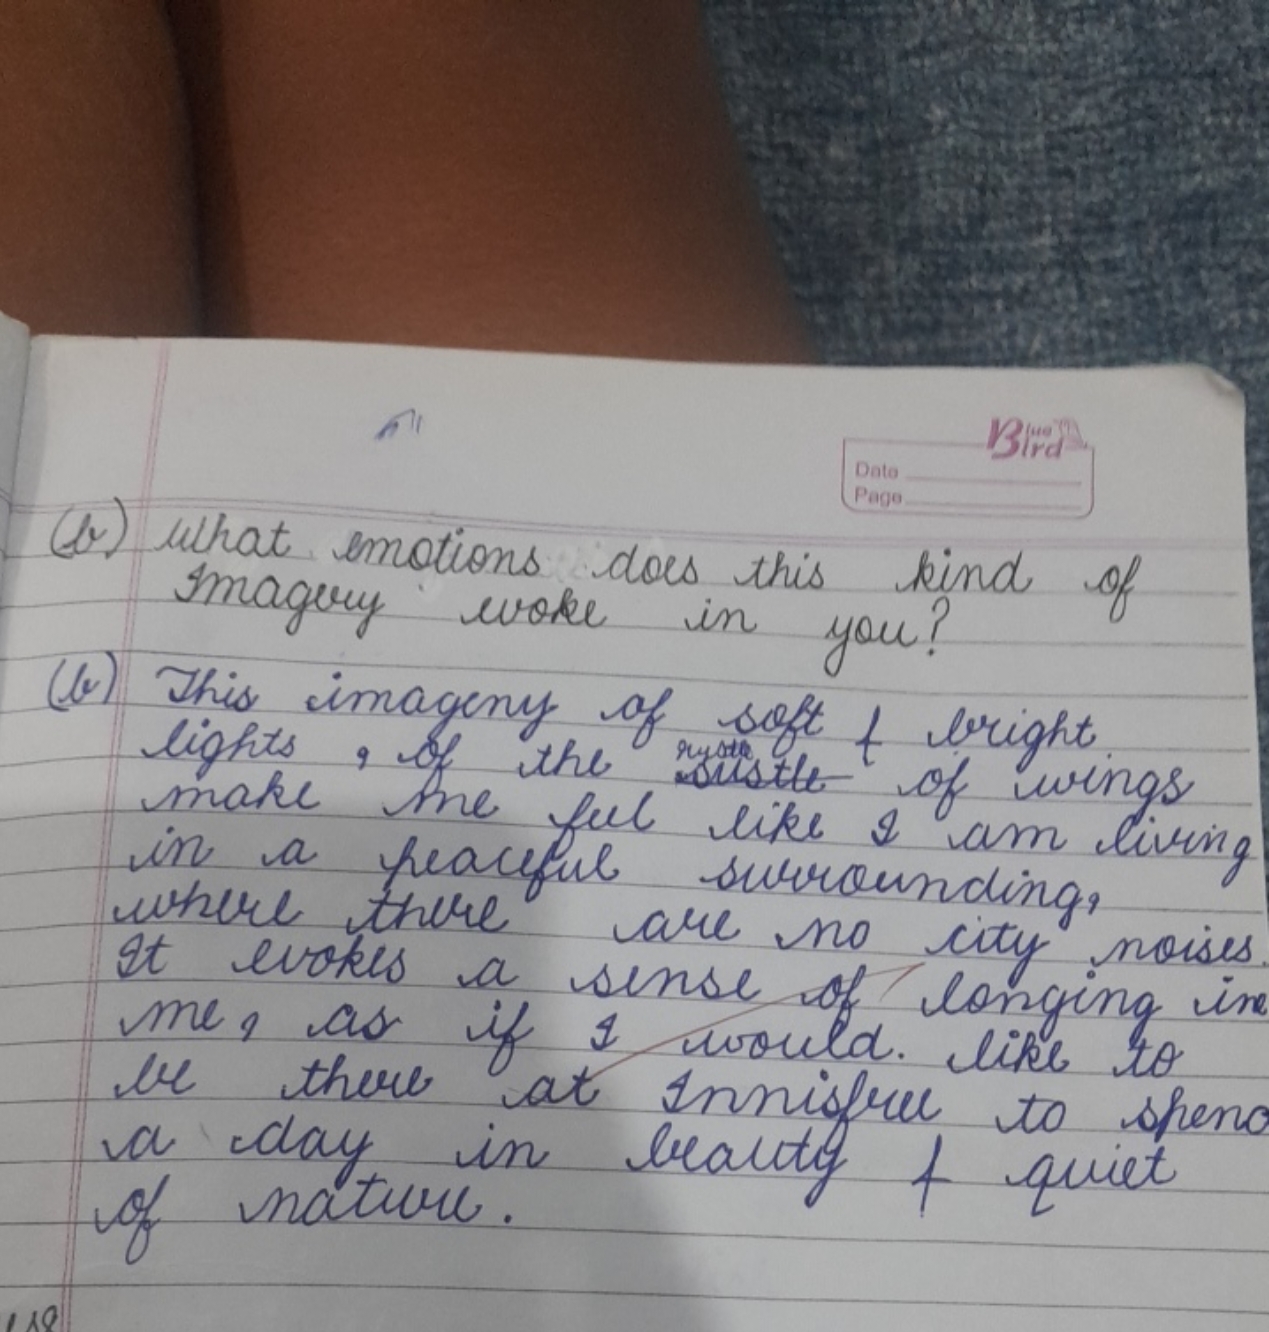 Blue Bird
Date
Page
(b) What emotions does this kind of
Imagery evoke in you?
(b) This imagery of soft & bright
lights, of the rustle of wings
make me feel like I am living
in a peaceful surrounding,
where there are no city noises.
It evokes a sense of longing in
me, as if I would. like to
be there at Innisfree to spend
a day in beauty & quiet
of nature.